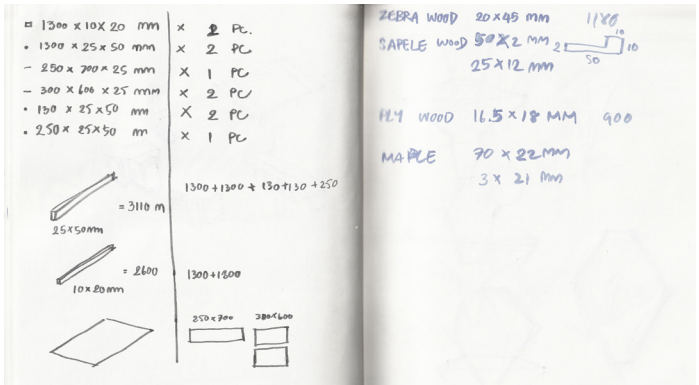 □ 1300 x 10 x 20 mm x 2 PC.
• 1300 x 25 x 50 mm x 2 PC
- 250 x 700 x 25 mm x 1 PC
- 300 x 600 x 25 mm x 2 PC
• 130 x 25 x 50 mm x 2 PC
• 250 x 25 x 50 m x 1 PC
1300 + 1300 + 130 + 130 + 250
= 3110 m
25 x 50 mm
= 2600
1300 + 1300
10 x 20 mm
250 x 700
300 x 600
ZEBRA WOOD 20 x 45 mm 1180
SAPELE WOOD 50 x 2 MM
2
10
10
50
25 x 12 mm
PLY WOOD 16.5 x 18 MM 900
MAPLE 70 x 22 MM
3 x 21 MM